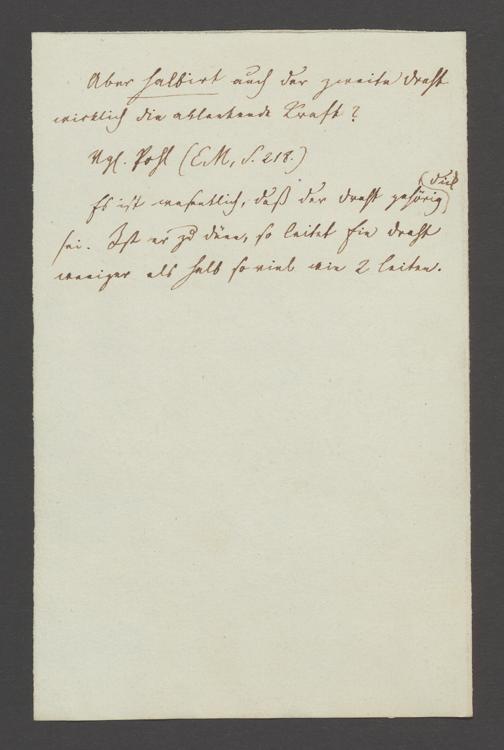 Aber halbirt auch der zweite Draht
wirklich die ablenkende Kraft?
Vgl. Pohl (EM, S. 218.)
Es ist wesentlich, daß der Draht gehörig (dick)
sei. Ist er zu dünn, so leitet Ein Draht
weniger als halb so viel wie 2 leiten.